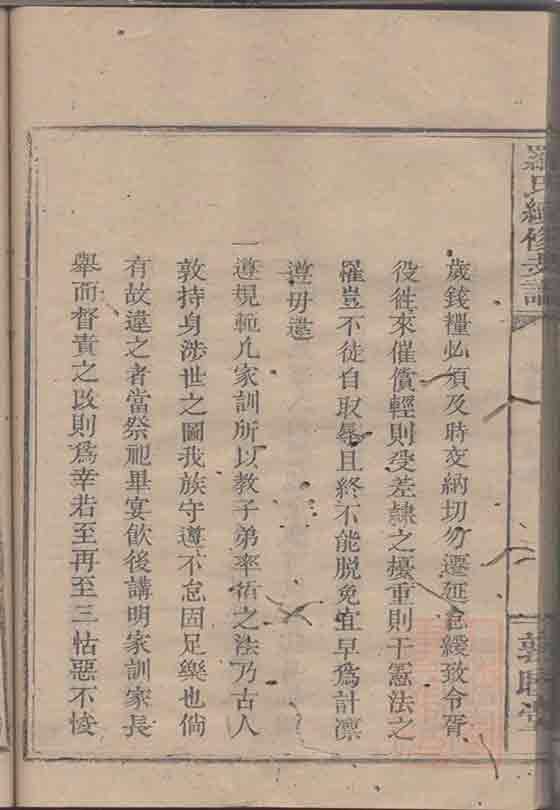 羅氏續修支譜
敦睦堂
歲錢糧必須及時交納切勿遷延怠緩致令胥
役徃來催償輕則受差隷之擾重則干憲法之
罹豈不徒自取辱且終不能脫免宜早為計凛
遵毋違
一遵規範凢家訓所以教子弟率循之法乃古人
敦持身涉世之圖我族守遵不怠固足樂也倘
有故違之者當祭祀畢宴飲後講明家訓家長
舉而督責之改則爲幸若至再至三怙惡不悛